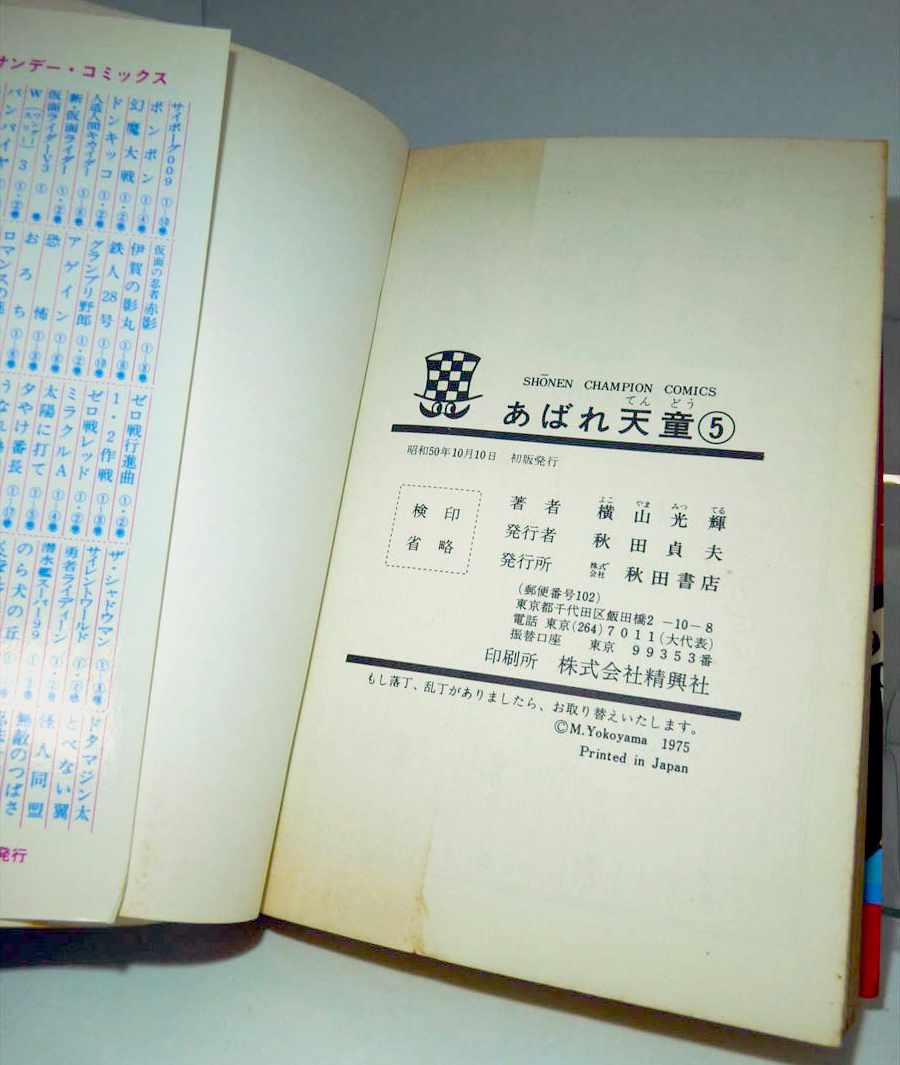 SHŌNEN CHAMPION COMICS
てん どう
あばれ天童⑤
昭和50年10月10日 初版発行
検印
省略
よこ やま みつ てる
著者 横山光輝
発行者 秋田貞夫
発行所 株式会社 秋田書店
(郵便番号102)
東京都千代田区飯田橋2-10-8
電話 東京(264)7011(大代表)
振替口座 東京 99353番
印刷所 株式会社精興社
もし落丁、乱丁がありましたら、お取り替えいたします。
©M.Yokoyama 1975
Printed in Japan
サンデー・コミックス
サイボーグ009 ①-⑩巻
ボンボン ①-④巻
幻魔大戦 ①・②巻
ドンキッコ ①・②巻
人造人間キカイダー ①-⑥巻
新・仮面ライダー ①・②巻
仮面ライダーV3 ①巻
W(ワンダースリー)3 ①・②巻
バンパイヤ
仮面の忍者赤影 ①-③巻
伊賀の影丸 ①-⑨巻
鉄人28号 ①-⑩巻
グランプリ野郎 ①・②巻
アゲイン ①-⑥巻
恐怖 ①-③巻
おろち ①-④巻
ロマンスの薬
ゼロ戦行進曲 ①・②巻
1・2作戦 ①-③巻
ゼロ戦レッド ①・②巻
ミラクルA ①-④巻
太陽に打て ①-⑤巻
夕やけ番長 ①-⑰巻
ザ・シャドウマン ①-③巻
サイレントワールド ①・②巻
勇者ライディーン ①・②巻
潜水艦スーパー99
のら犬の丘
ドタマジン太
とべない翼
怪人同盟
無敵のつばさ
発行